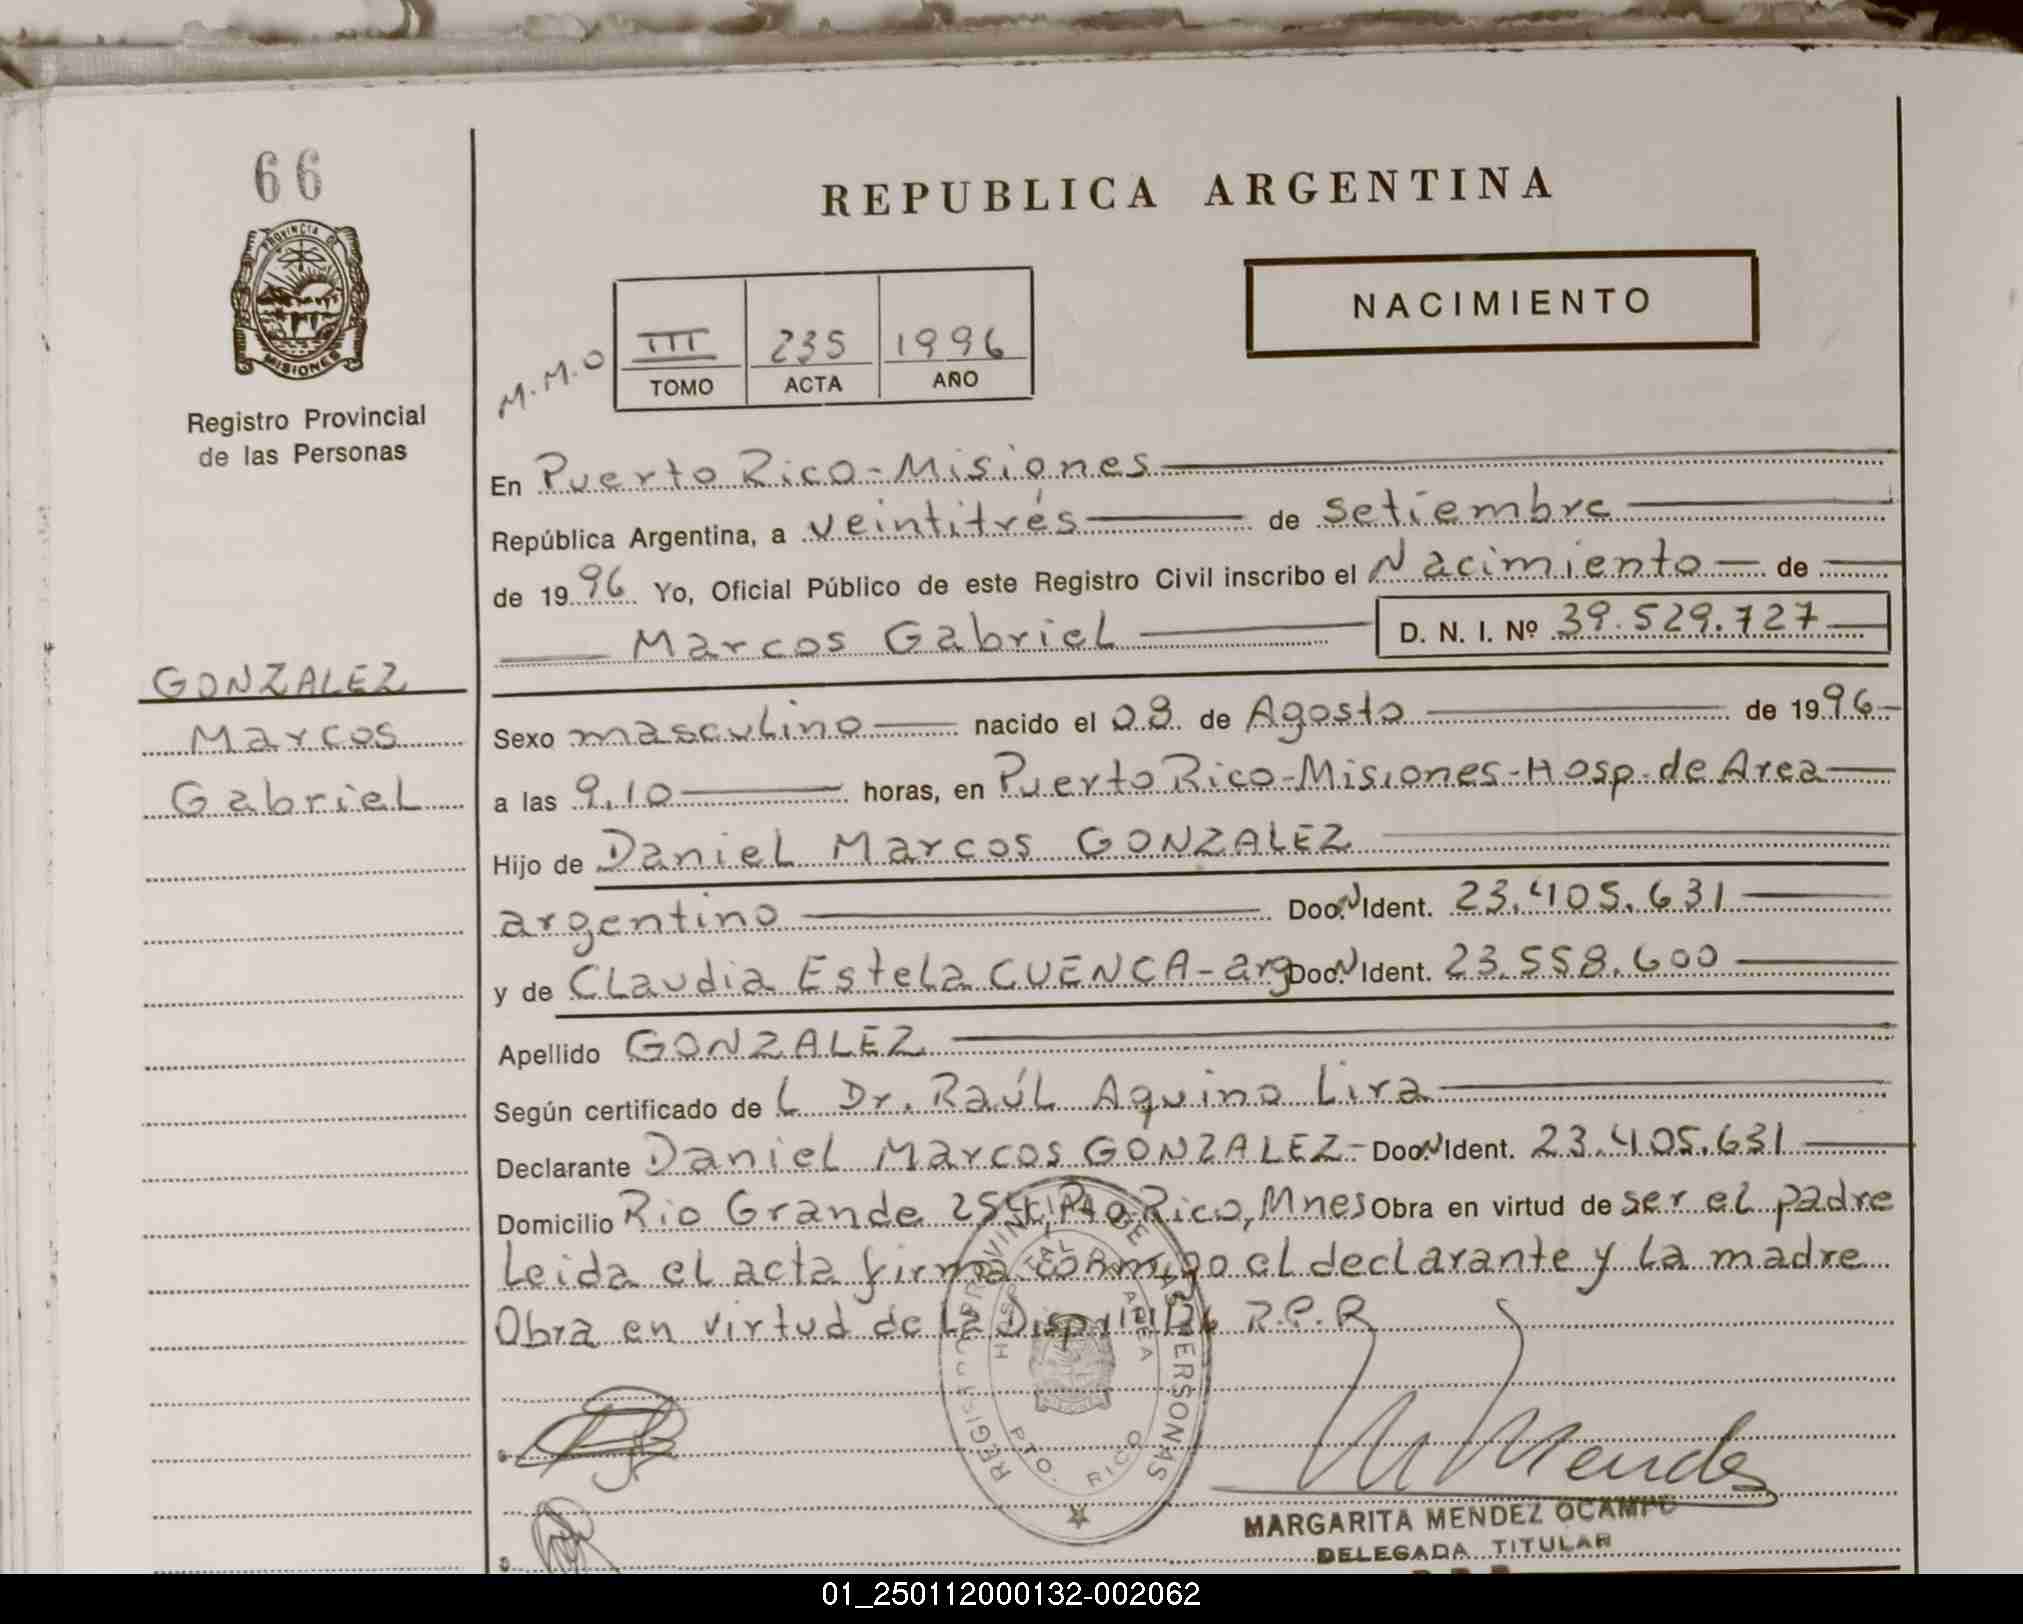 66
PROVINCIA DE
MISIONES
Registro Provincial
de las Personas
REPUBLICA ARGENTINA
NACIMIENTO
M.M.O
III 235 1996
TOMO ACTA AÑO
En Puerto Rico-Misiones
República Argentina, a veintitrés de setiembre
de 1996 Yo, Oficial Público de este Registro Civil inscribo el Nacimiento de
Marcos Gabriel D. N. I. Nº 39.529.727
GONZALEZ
Marcos
Gabriel
Sexo masculino nacido el 08 de Agosto de 1996
a las 9.10 horas, en Puerto Rico-Misiones-Hosp. de Area
Hijo de Daniel Marcos GONZALEZ
argentino Doc. N Ident. 23.405.631
y de Claudia Estela CUENCA-arg Doc. N Ident. 23.558.600
Apellido GONZALEZ
Según certificado de L Dr. Raúl Aquino Lira
Declarante Daniel Marcos GONZALEZ- Doc. N Ident. 23.405.631
Domicilio Rio Grande Pto Rico, Mnes Obra en virtud de ser el padre
Leida el acta firma conmigo el declarante y la madre
Obra en virtud de la Disp R.P.P.
REGISTRO PROVINCIAL DE LAS PERSONAS
HOSPITAL DE AREA
PTO. RICO
M Mendez
MARGARITA MENDEZ OCAMPO
DELEGADA TITULAR
01_250112000132-002062